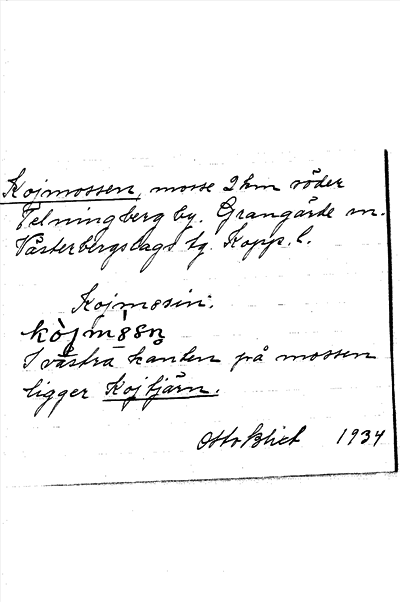 Kojmossen, mosse 2 km söder
Telningberg by. Grangärde sn.
Västerbergslags tg. Kopp. l.
Kojm8sin:
kòjm8sn̥
I västra kanten på mossen
ligger Kojtjärn.
Otto Blixt 1934